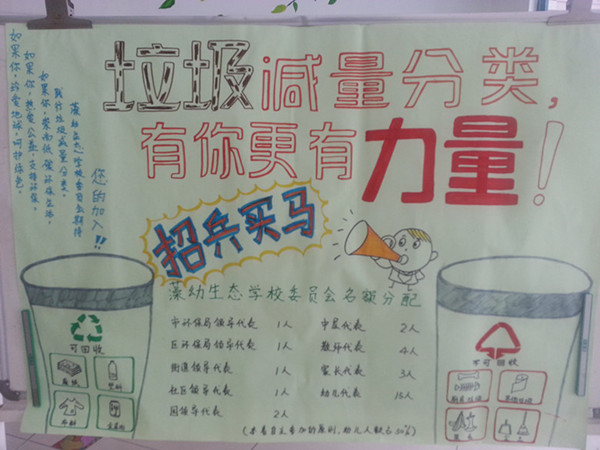 垃圾减量分类,
有你更有力量!
如果你,珍爱地球,呵护绿色。
如果你,热爱公益,支持环保。
如果你,
践行垃圾减量分类。
藻幼生态学校委员会期待
您的加入!!
招兵买马
藻幼生态学校委员会名额分配
市环保局领导代表 1人
区环保局领导代表 1人
街道领导代表 1人
社区领导代表 1人
园领导代表 2人
中层代表 2人
教师代表 4人
家长代表 3人
幼儿代表 15人
(本着自主参加的原则,幼儿人数占50%)
可回收
废纸
塑料
衣服
金属
不可回收